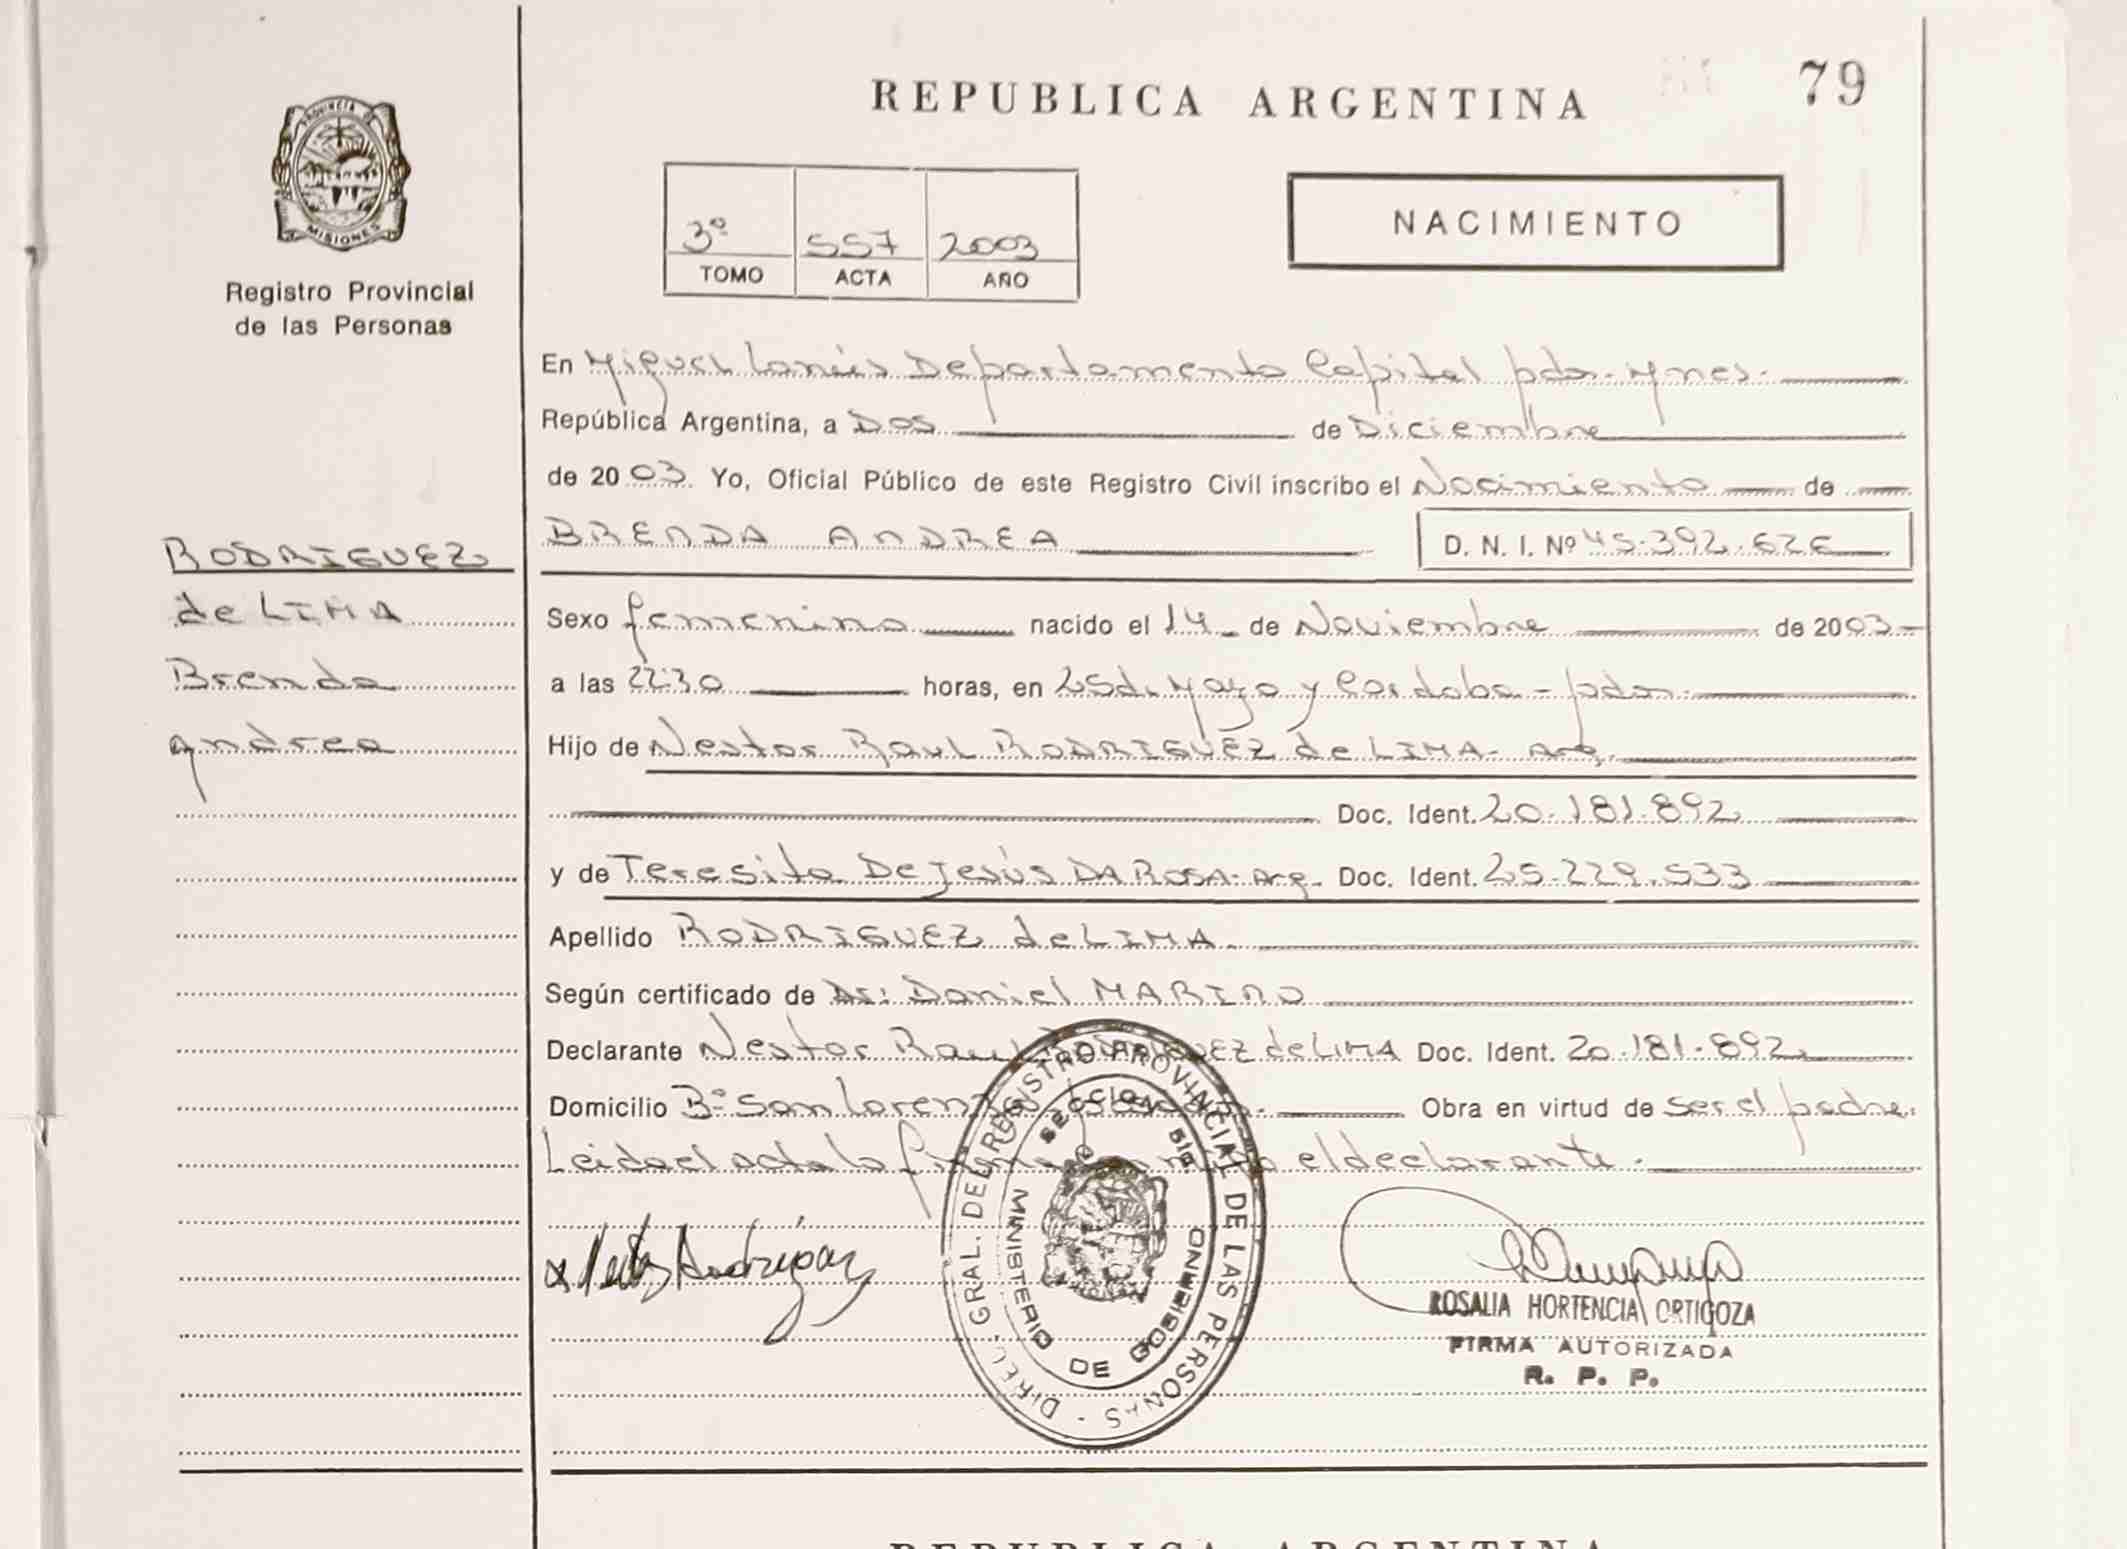 REPUBLICA ARGENTINA
79
PROVINCIA DE
MISIONES
Registro Provincial
de las Personas
3º 557 2003
TOMO ACTA AÑO
NACIMIENTO
En Miguel Lanús Departamento Capital pdas. Mnes.
República Argentina, a Dos de Diciembre
de 2003. Yo, Oficial Público de este Registro Civil inscribo el Nacimiento de
BRENDA ANDREA D. N. I. Nº 45.392.626
RODRIGUEZ
de LIMA
Brenda
Andrea
Sexo femenino nacido el 14 de Noviembre de 2003
a las 22:30 horas, en 25 de Mayo y Cordoba - pdas.
Hijo de Nestor Raul RODRIGUEZ de LIMA- Arg.
Doc. Ident. 20.181.892
y de Teresita De Jesús DA ROSA- Arg. Doc. Ident. 25.229.533
Apellido RODRIGUEZ de LIMA.
Según certificado de Dr: Daniel MARINO
Declarante Nestor Raul RODRIGUEZ de LIMA Doc. Ident. 20.181.892
Domicilio Bº San Lorenzo Obra en virtud de ser el padre.
Leida el acta la firma el declarante.
DIREC. GRAL. DEL REGISTRO PROVINCIAL DE LAS PERSONAS
MINISTERIO DE GOBIERNO
ROSALIA HORTENCIA ORTIGOZA
FIRMA AUTORIZADA
R. P. P.
REPUBLICA ARGENTINA